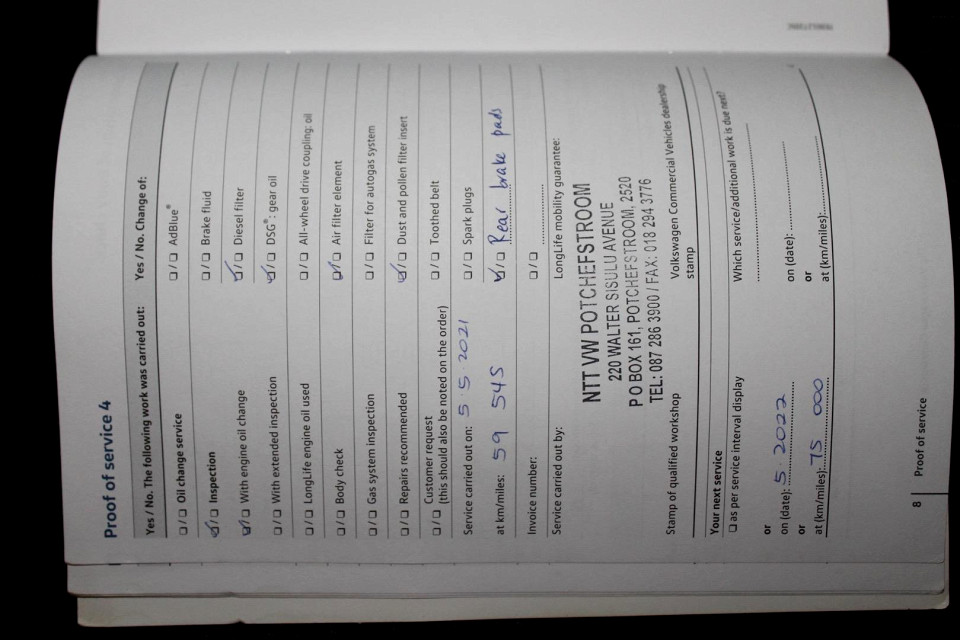 Proof of service 4
Yes / No. The following work was carried out:
☐ / ☐ Oil change service
☑ / ☐ Inspection
☑ / ☐ With engine oil change
☐ / ☐ With extended inspection
☐ / ☐ LongLife engine oil used
☐ / ☐ Body check
☐ / ☐ Gas system inspection
☐ / ☐ Repairs recommended
☐ / ☐ Customer request
(this should also be noted on the order)
Service carried out on: 5 5 2021
at km/miles: 59 545
Invoice number:
Service carried out by:
Yes / No. Change of:
☐ / ☐ AdBlue®
☐ / ☐ Brake fluid
☑ / ☐ Diesel filter
☑ / ☐ DSG®: gear oil
☐ / ☐ All-wheel drive coupling: oil
☑ / ☐ Air filter element
☐ / ☐ Filter for autogas system
☑ / ☐ Dust and pollen filter insert
☐ / ☐ Toothed belt
☐ / ☐ Spark plugs
☑ / ☐ Rear brake pads
☐ / ☐ ..............
LongLife mobility guarantee:
NTT VW POTCHEFSTROOM
220 WALTER SISULU AVENUE
P O BOX 161, POTCHEFSTROOM, 2520
TEL: 087 286 3900 / FAX: 018 294 3776
Stamp of qualified workshop
Volkswagen Commercial Vehicles dealership
stamp
Your next service
☐ as per service interval display
or
on (date): 5 2022
or
at (km/miles): 75 000
Which service/additional work is due next?
on (date):
or
at (km/miles):
8 | Proof of service